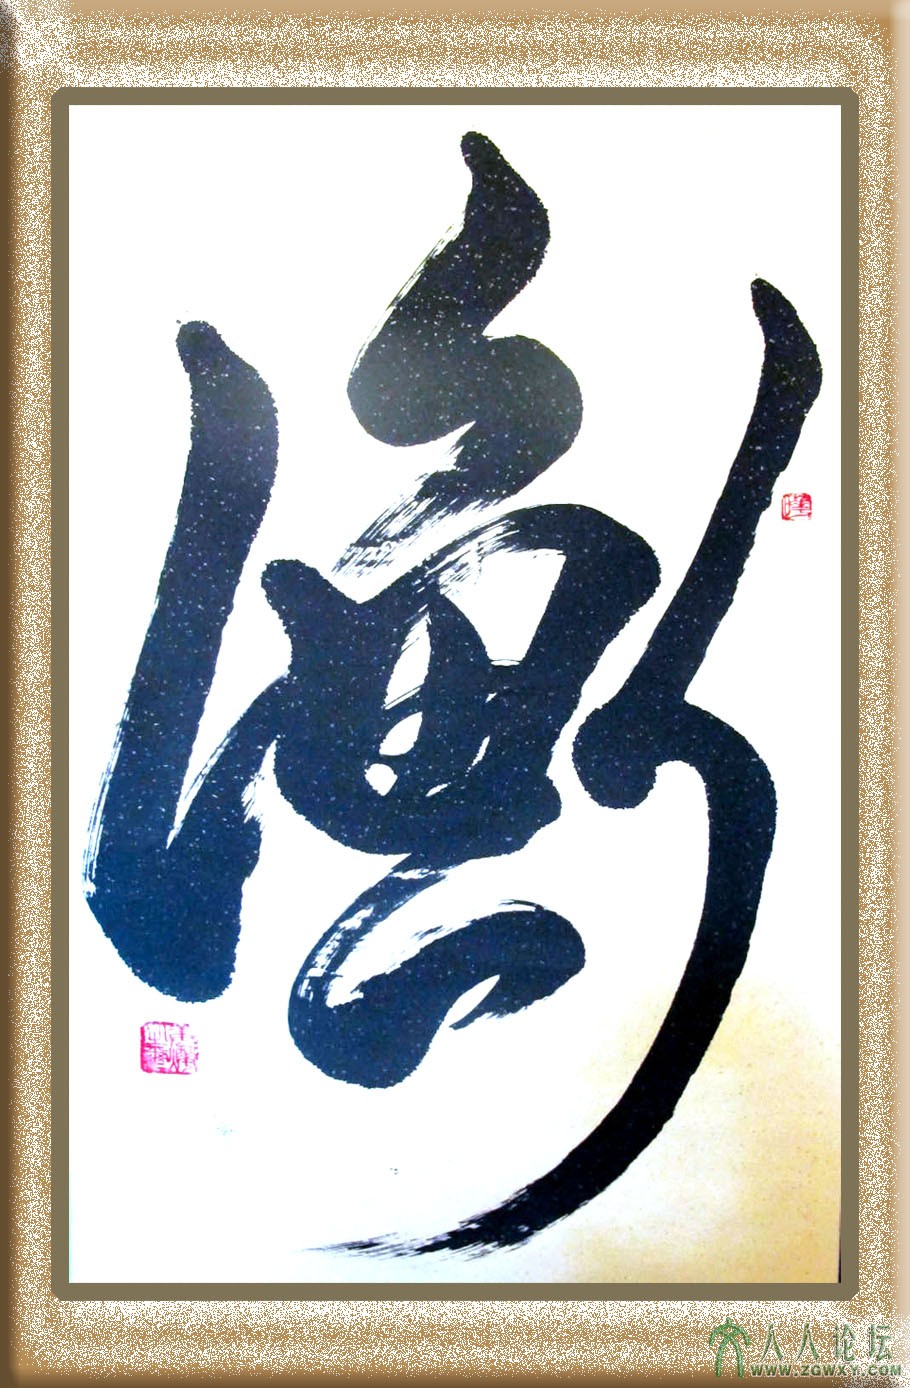 衡
人人论坛
WWW.ZGWXY.COM